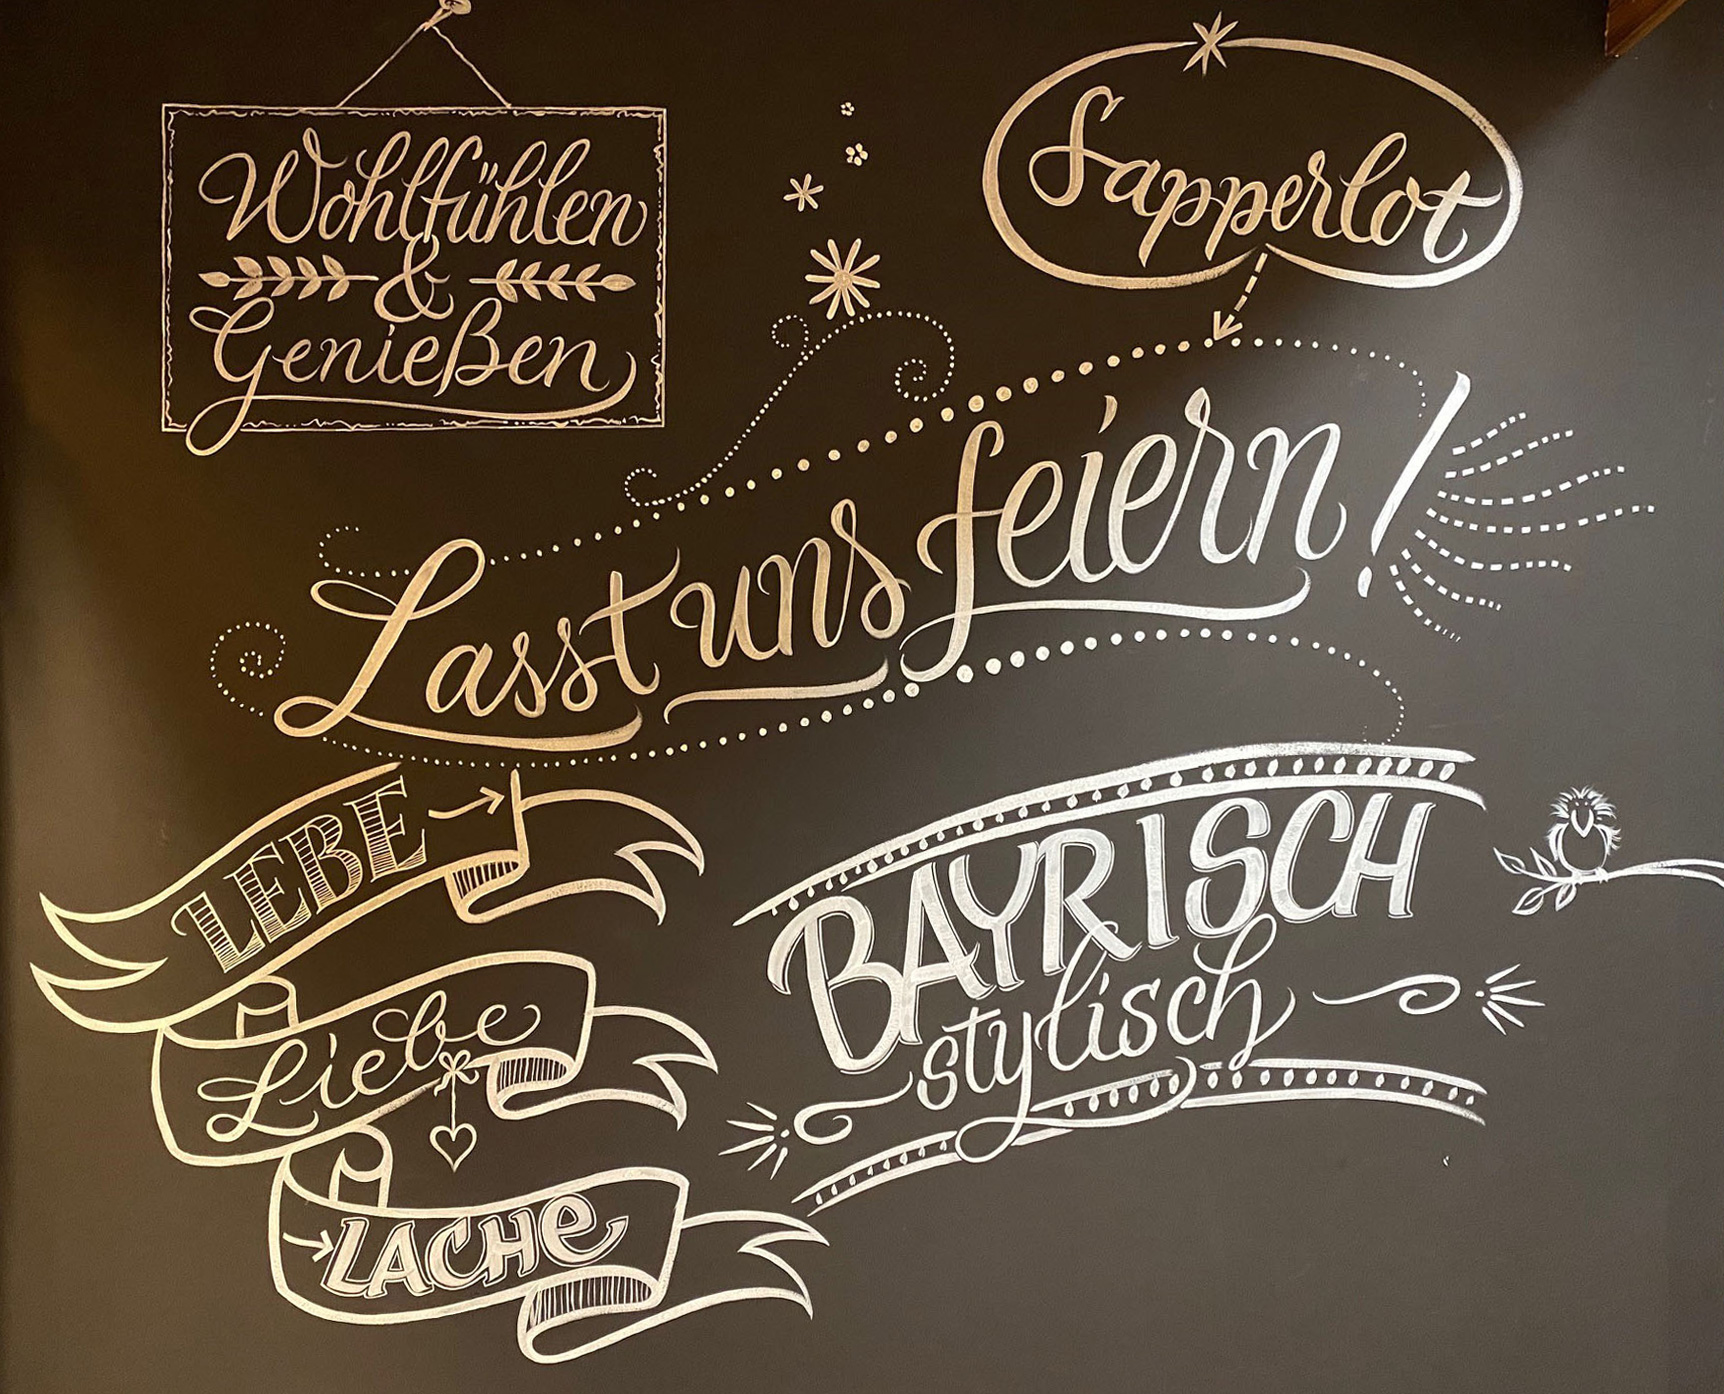 Wohlfühlen
&
Genießen
Sapperlot
Lasst uns feiern!
LEBE
Liebe
LACHe
BAYRISCH
stylisch